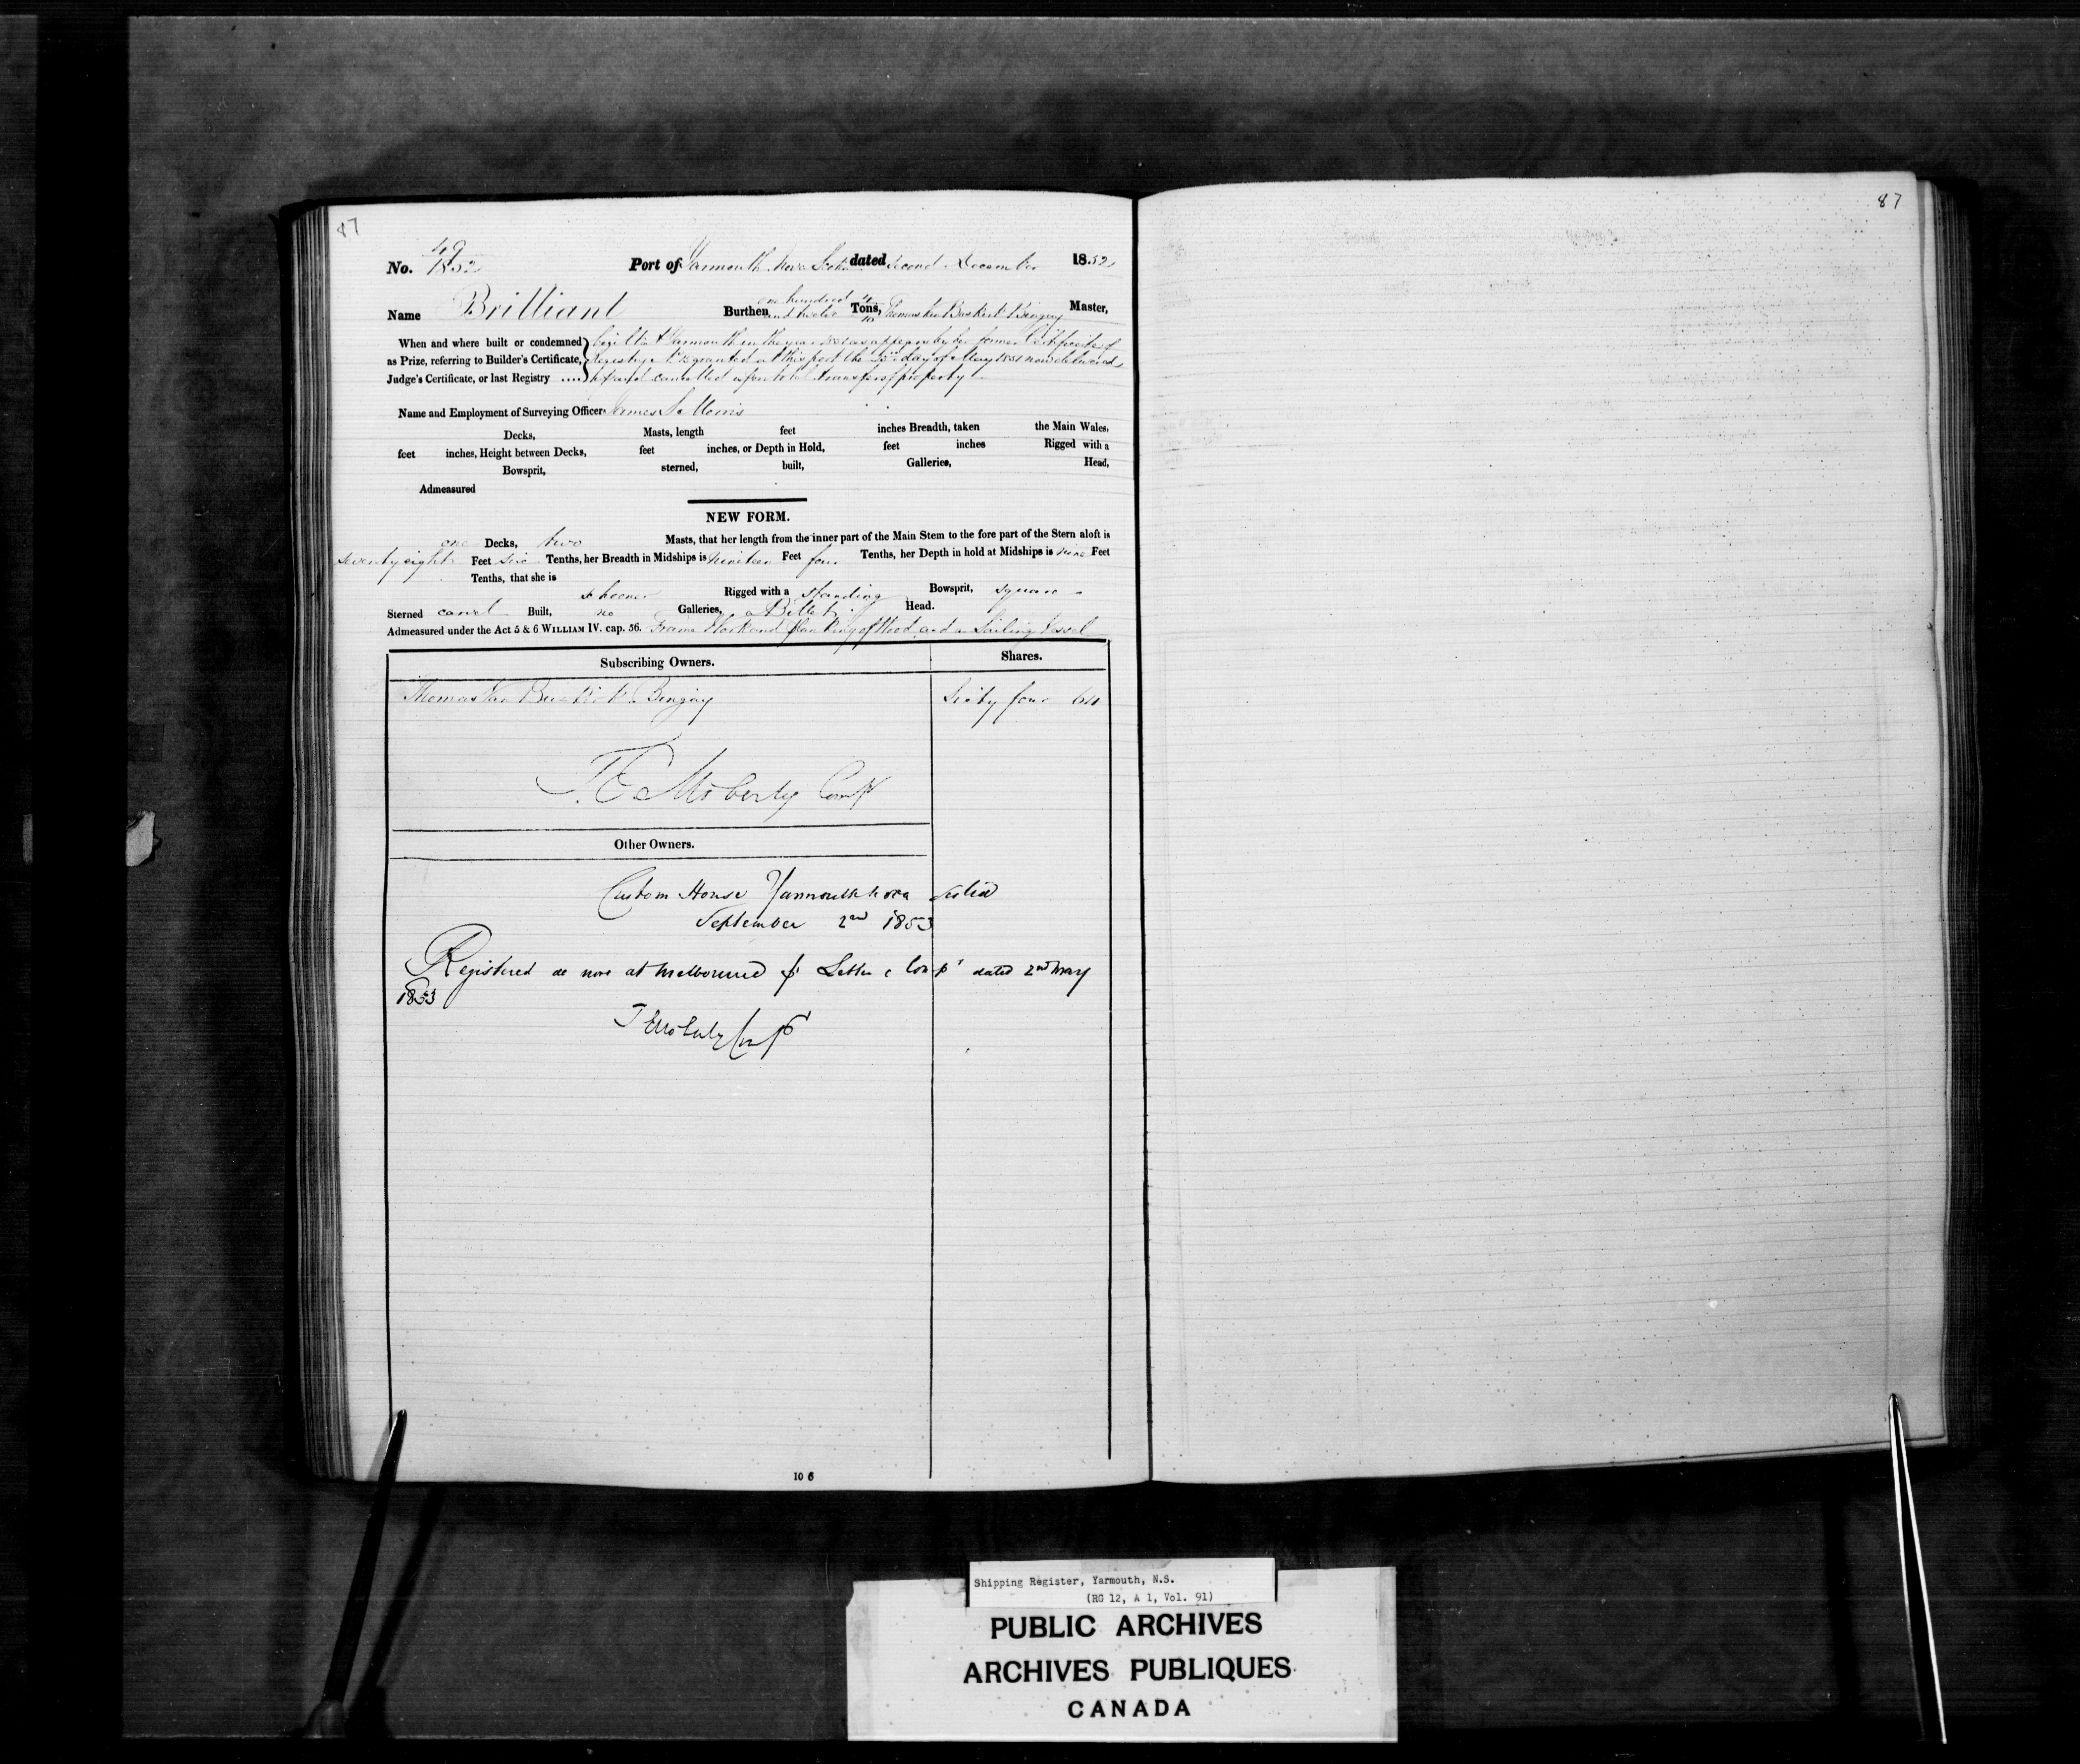 87
87
No. 49/1852 Port of Yarmouth Nova Scotia dated second December 1852
Name Brilliant Burthen one hundred and twelve 4/10 Tons, Thomas Van Buskirk Bingay Master,
When and where built or condemned as Prize, referring to Builder's Certificate, Judge's Certificate, or last Registry ....
built at Yarmouth in the year 1851 as appears by her former Certificate of
Registry No 13 granted at this port the day of May 1851 now delivered
up and cancelled upon total transfer of property
Name and Employment of Surveying Officer James S. Morris
Decks, Masts, length feet inches Breadth, taken the Main Wales,
feet inches, Height between Decks, feet inches, or Depth in Hold, feet inches Rigged with a
Bowsprit, sterned, built, Galleries, Head,
Admeasured
NEW FORM.
one Decks, two Masts, that her length from the inner part of the Main Stem to the fore part of the Stern aloft is
seventy eight Feet six Tenths, her Breadth in Midships is nineteen Feet four Tenths, her Depth in hold at Midships is nine Feet
Tenths, that she is
schooner Rigged with a standing Bowsprit, square
Sterned carvel Built, no Galleries, a Billet Head.
Admeasured under the Act 5 & 6 WILLIAM IV. cap. 56. Frame Work and planking of Wood and a Sailing Vessel
Subscribing Owners. Shares.
Thomas Van Buskirk Bingay Sixty four 64
T. E. Moberly Compt
Other Owners.
Custom House Yarmouth Nova Scotia
September 2nd 1853
Registered de novo at Melbourne Letter Compt dated 2nd May
1853
T E Moberly Compt
10 6
Shipping Register, Yarmouth, N.S.
(RG 12, A 1, Vol. 91)
PUBLIC ARCHIVES
ARCHIVES PUBLIQUES
CANADA